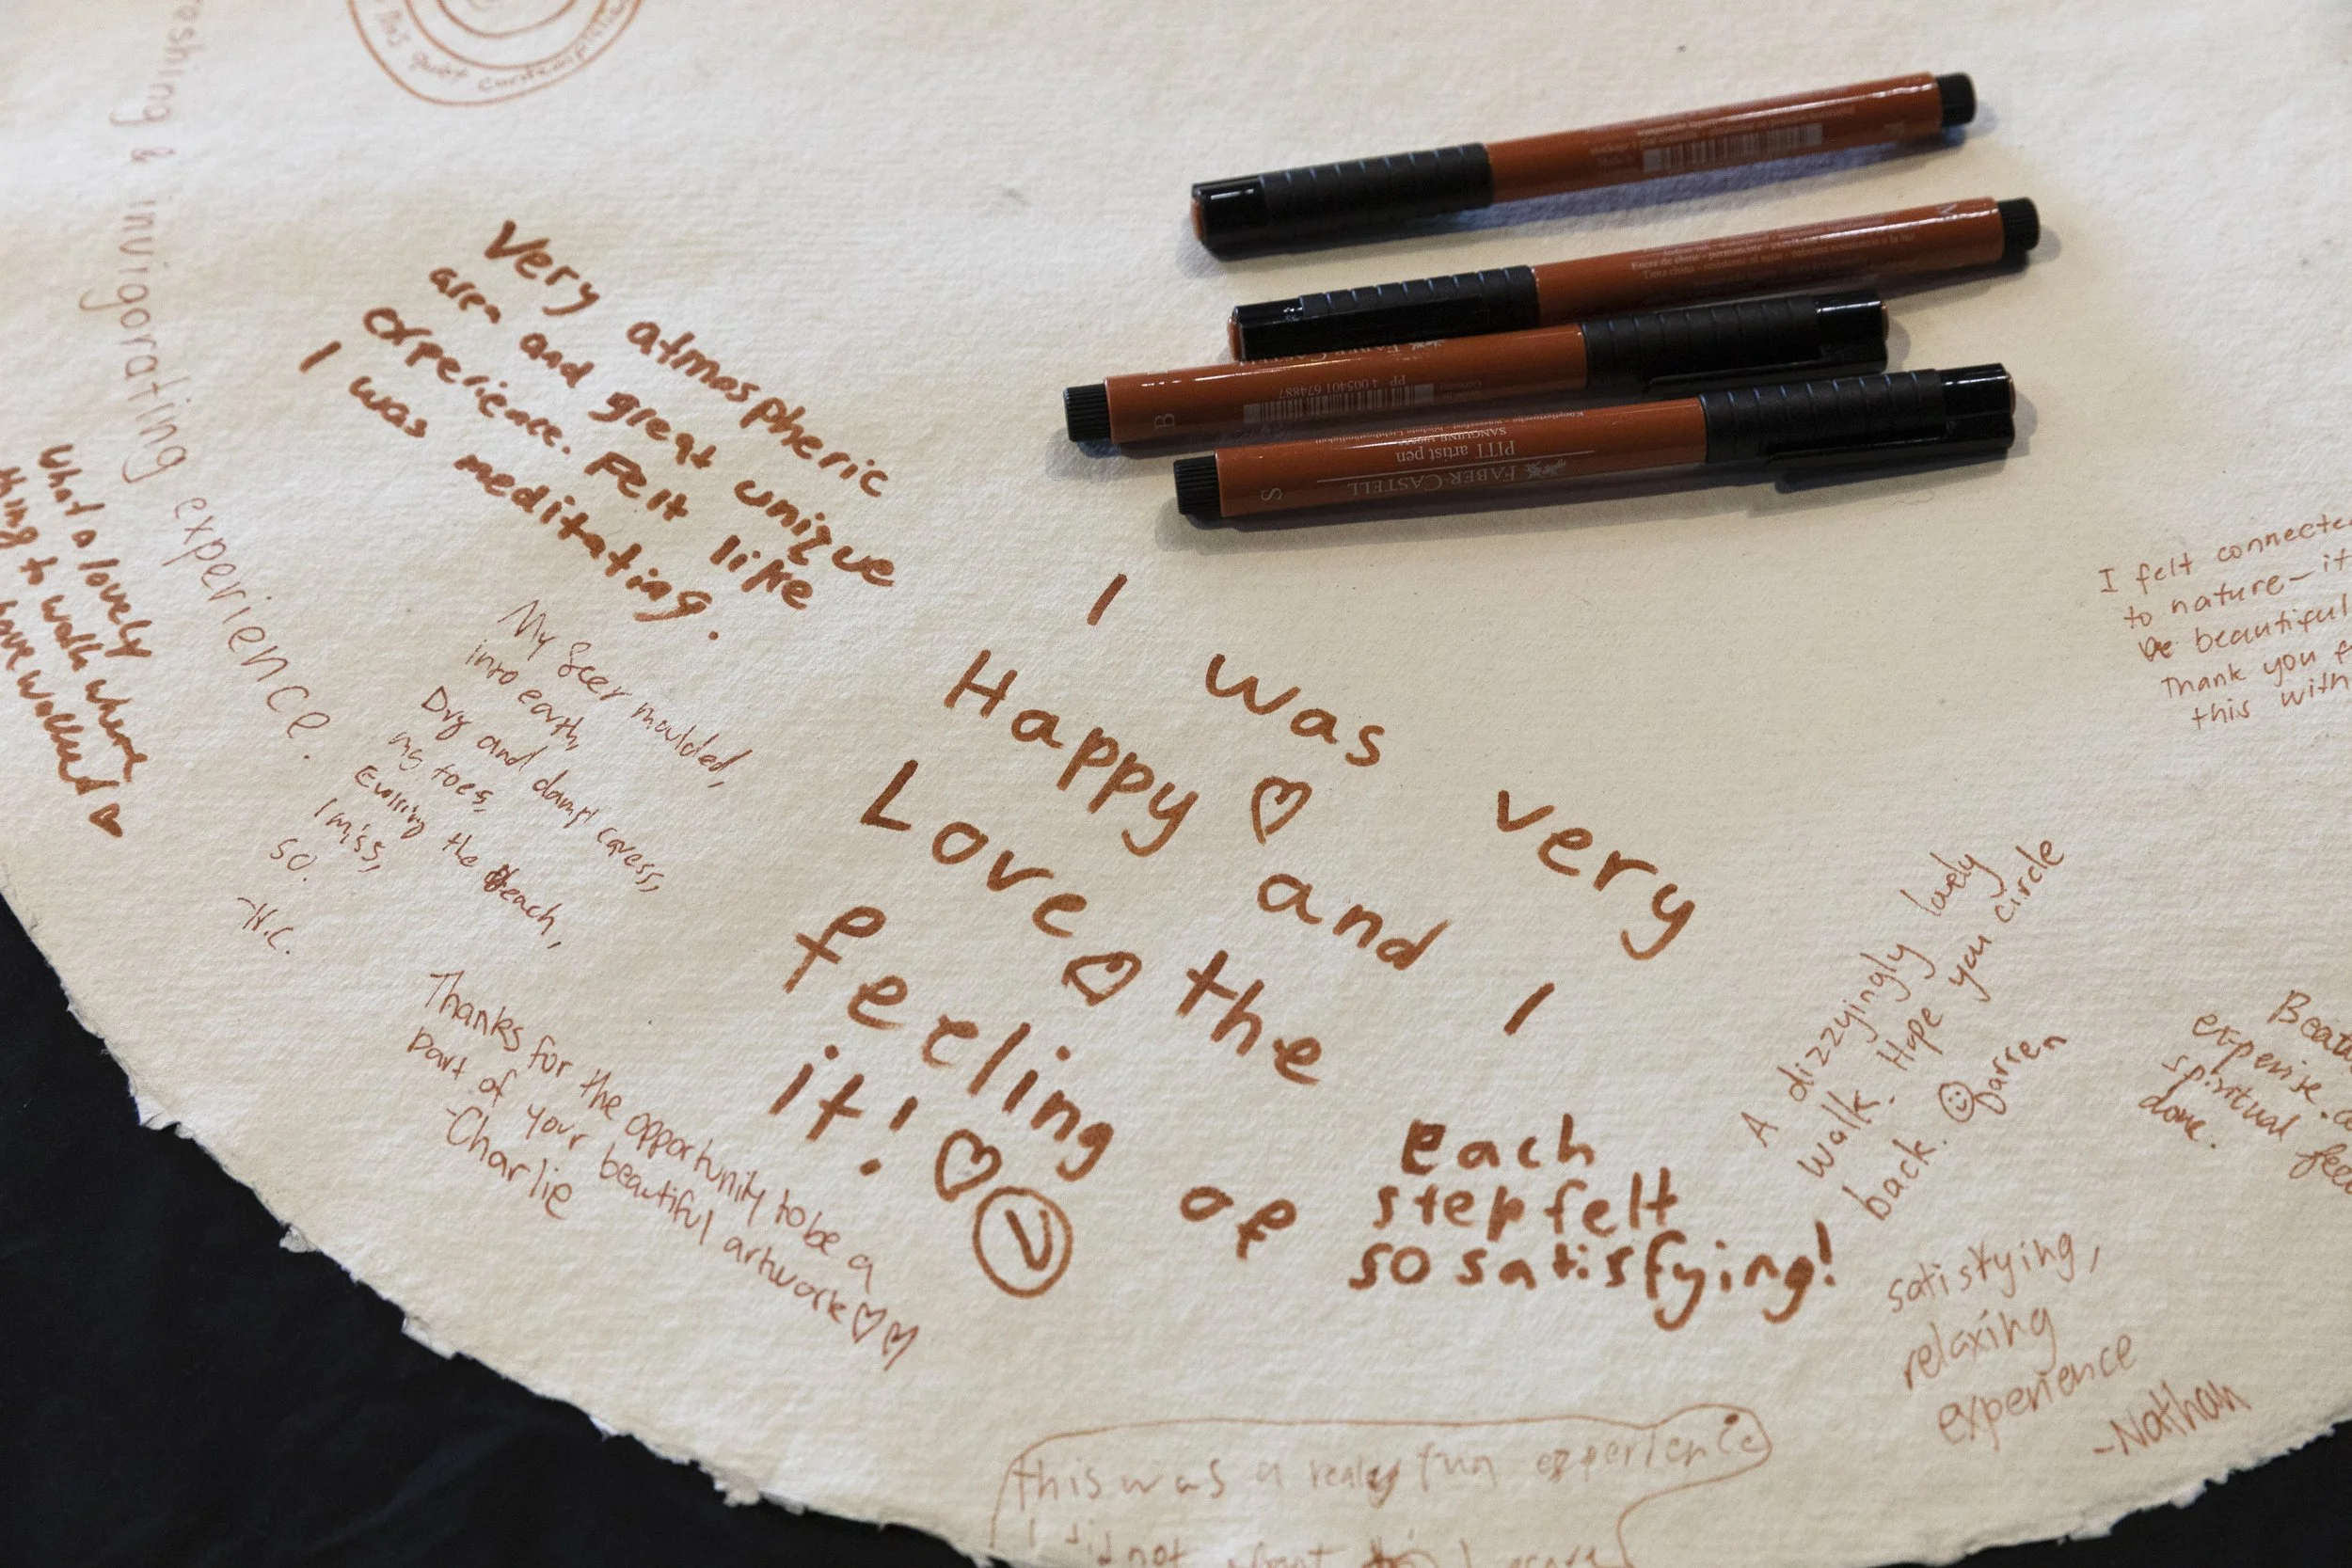 this quiet contemplation
& invigorating experience.
Very atmospheric
area and great unique
experience. Felt like
I was meditating.
What a lovely
thing to walk where
have walked
My feet moulded,
into earth,
Dry and damp caress,
my toes,
the Beach,
I miss,
so.
Thanks for the opportunity to be a
part of your beautiful artwork ♡♡
-Charlie
I was very
Happy ♡ and I
Love ♡ the
feeling of
it! ♡
Each
step felt
so satisfying!
A dizzyingly lovely
walk. Hope you circle
back. ☺ Darren
satisfying,
relaxing
experience
-Nathan
I felt connecte
to nature – it
be beautiful
Thank you f
this with
spiritual fee
done.
this was a really fun experience
I did not
FABER-CASTELL
PITT artist pen
SANGUINE
S
FABER-CASTELL
PP 4 005401 674887
B
M